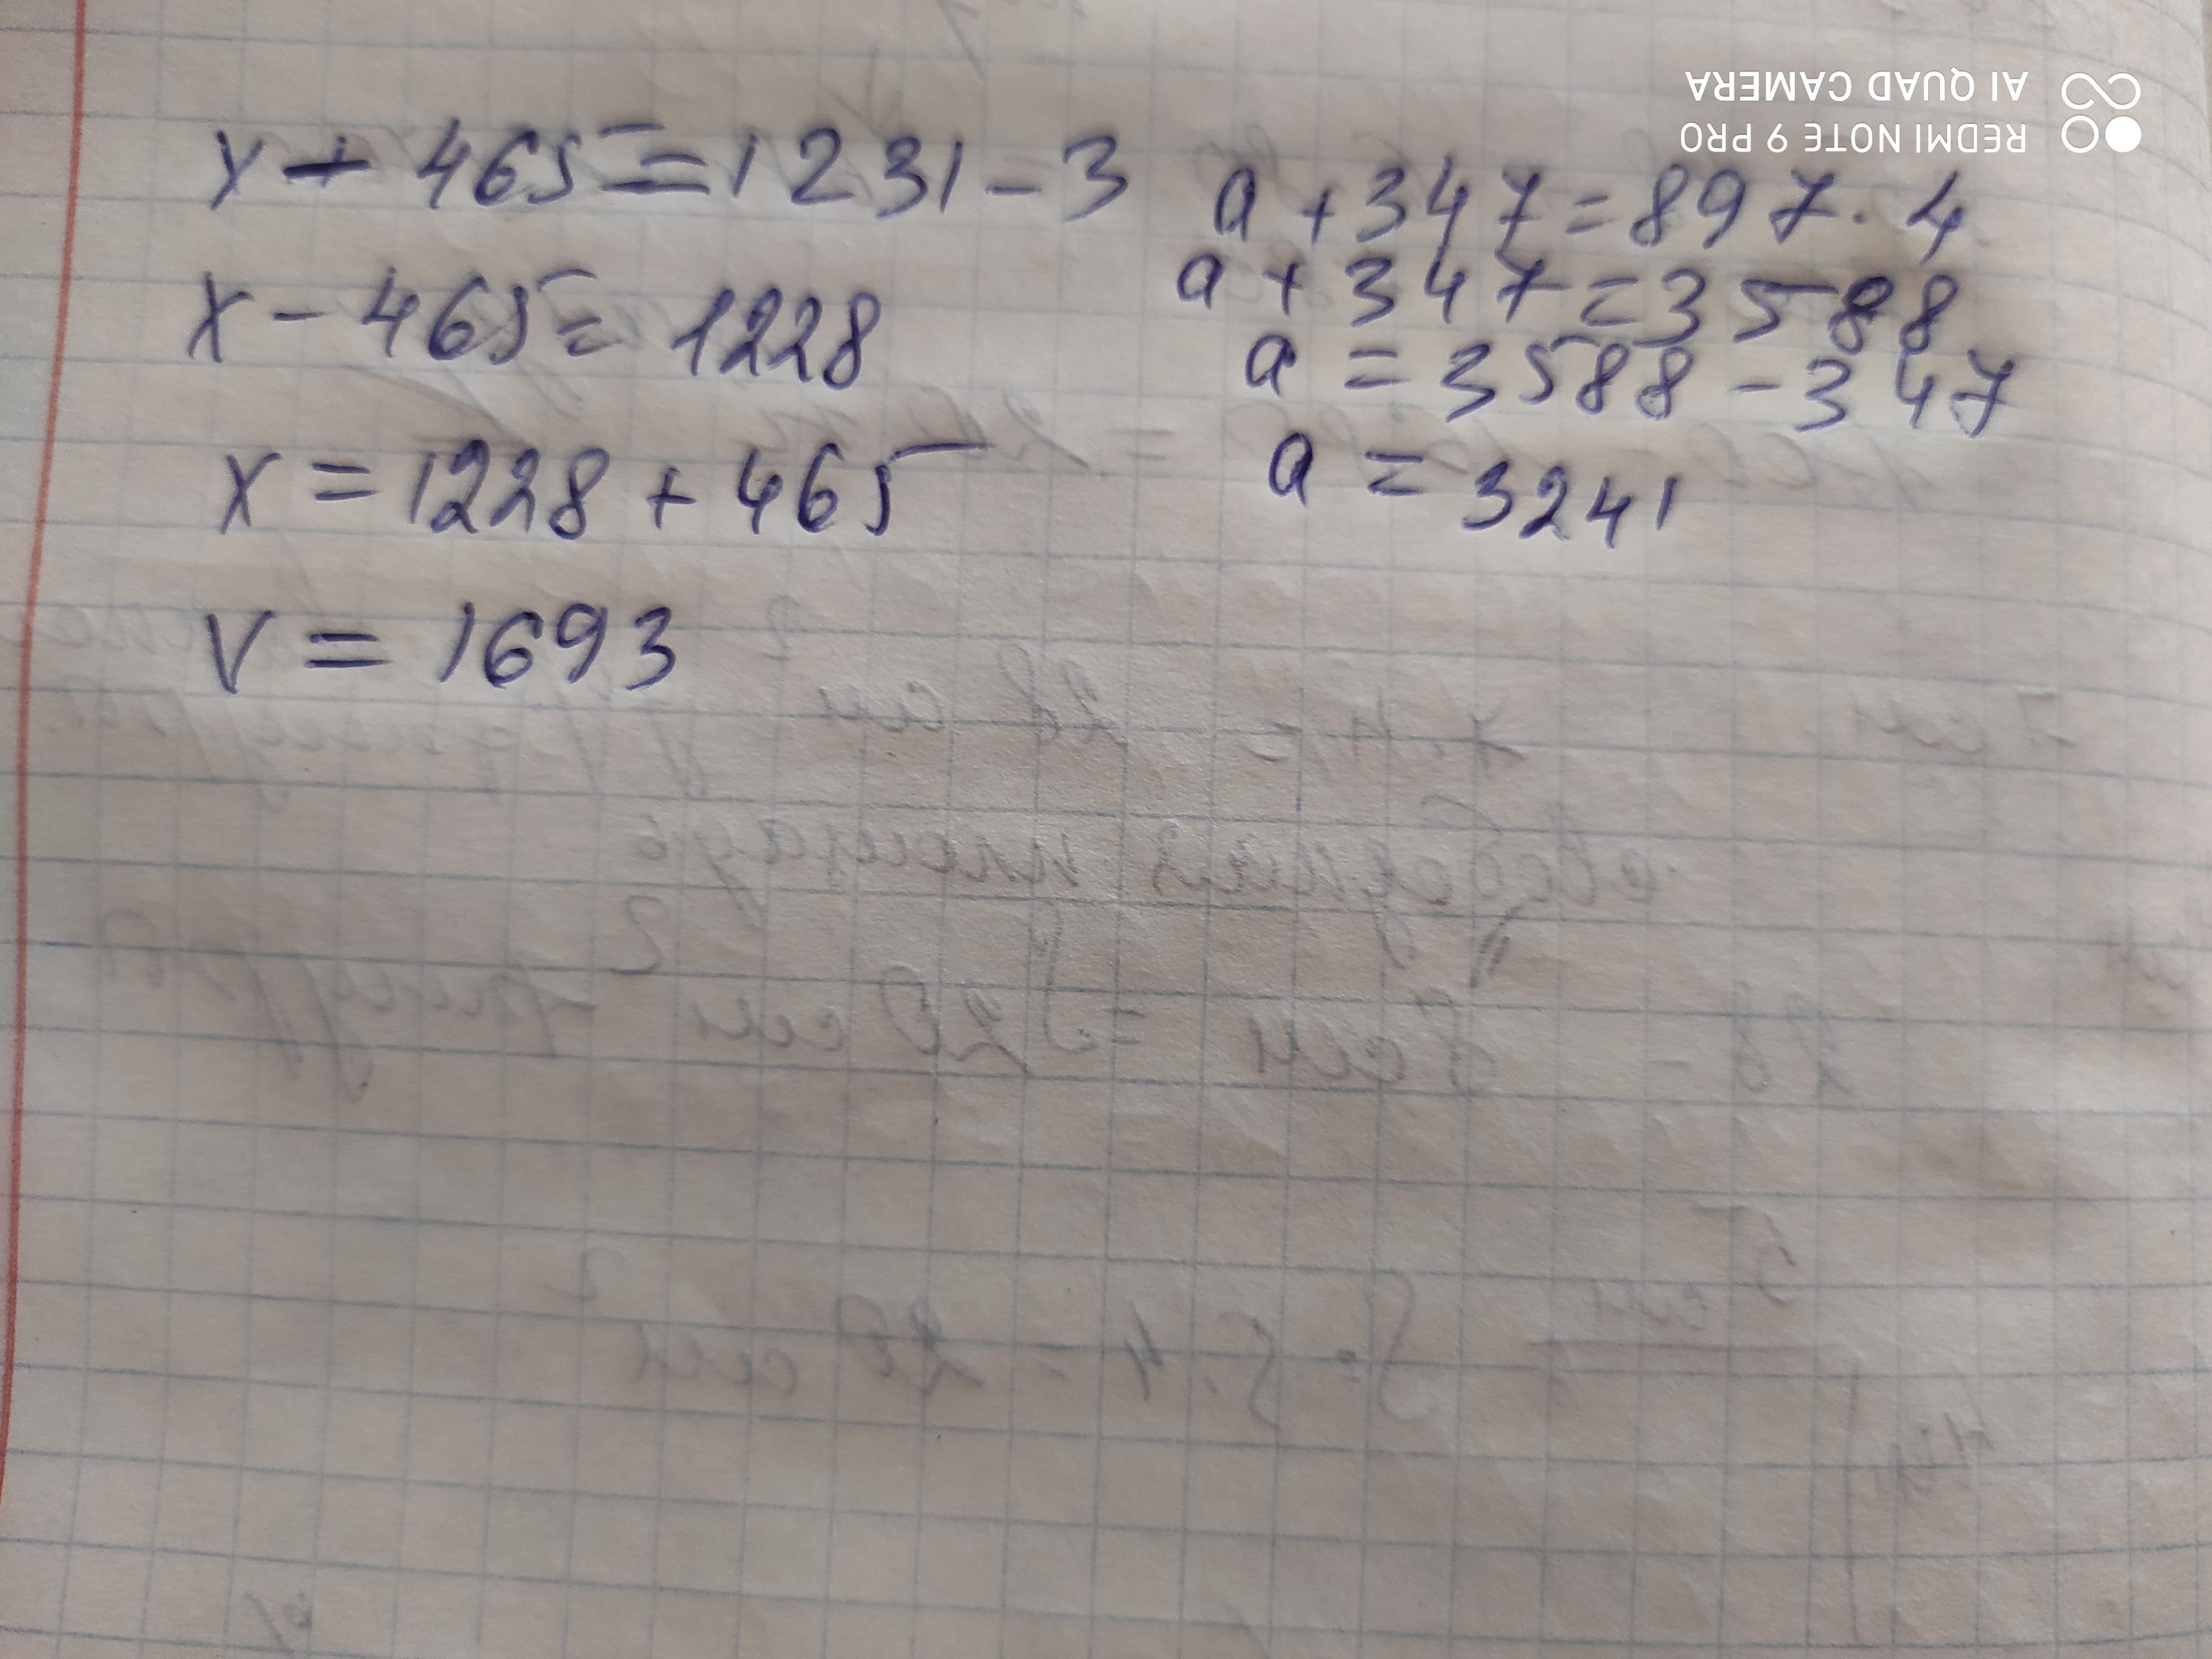 x - 465 = 1231 - 3
x - 465 = 1228
x = 1228 + 465
x = 1693
a + 347 = 897 · 4
a + 347 = 3588
a = 3588 - 347
a = 3241
REDMI NOTE 9 PRO
AI QUAD CAMERA